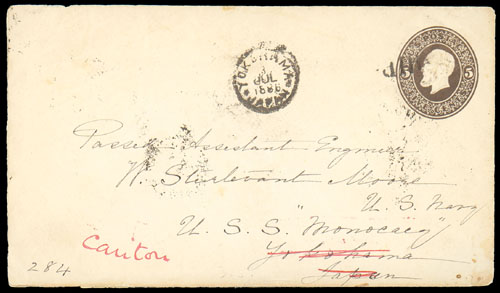 YOKOHAMA
JUL
5 5
Passed Assistant Engineer
W. Sturtevant Moore
U. S. Navy
U. S. S. "Monocacy"
Yokohama
Japan
Canton
284